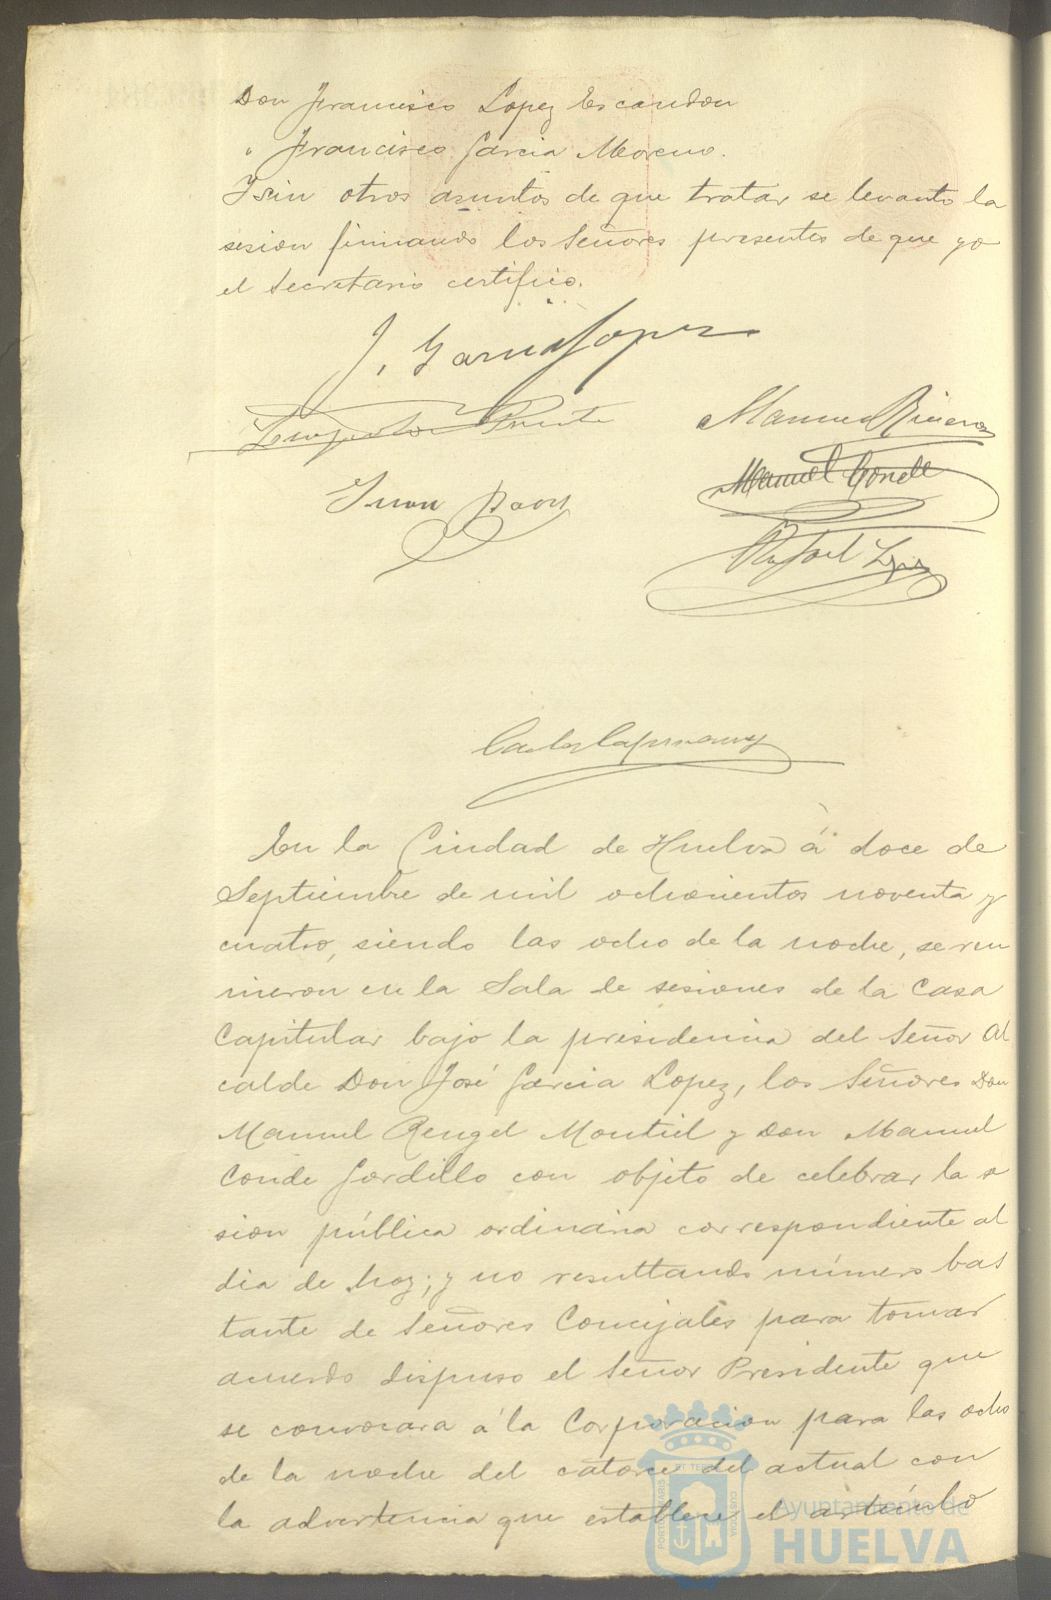 Don Francisco Lopez Escandon
" Francisco Garcia Moreno.
Y sin otros asuntos de que tratar se levantó la
sesion firmando los Señores presentes de que yo
el Secretario certifico.
J. Garcia Lopez
Manuel
Manuel Conde
Juan
Rafael
Carlos
En la Ciudad de Huelva á doce de
Septiembre de mil ochocientos noventa y
cuatro, siendo las ocho de la noche, se reu
nieron en la Sala de sesiones de la Casa
Capitular bajo la presidencia del Señor Al
calde Don José Garcia Lopez, los Señores Don
Manuel Rengel Montiel y Don Manuel
Conde Gordillo con objeto de celebrar la se
sion pública ordinaria correspondiente al
dia de hoy; y no resultando número bas
tante de Señores Concejales para tomar
acuerdo dispuso el Señor Presidente que
se convocara á la Corporacion para las ocho
de la noche del catorce del actual con
la advertencia que establece el artículo
Ayuntamiento de
HUELVA